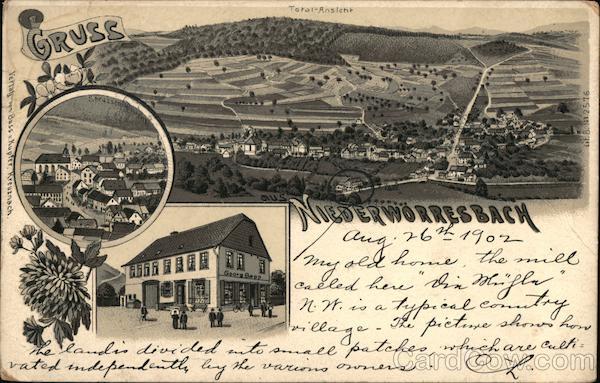 Total-Ansicht
GRUSS
AUS
NIEDERWÖRRESBACH
Georg Bepp
Aug. 26th 1902
My old home, the mill
called here "Die Mühle"
N.W. is a typical country
village - The picture shows how
the land is divided into small patches which are culti-
vated independently by the various owners.
CardCow.com